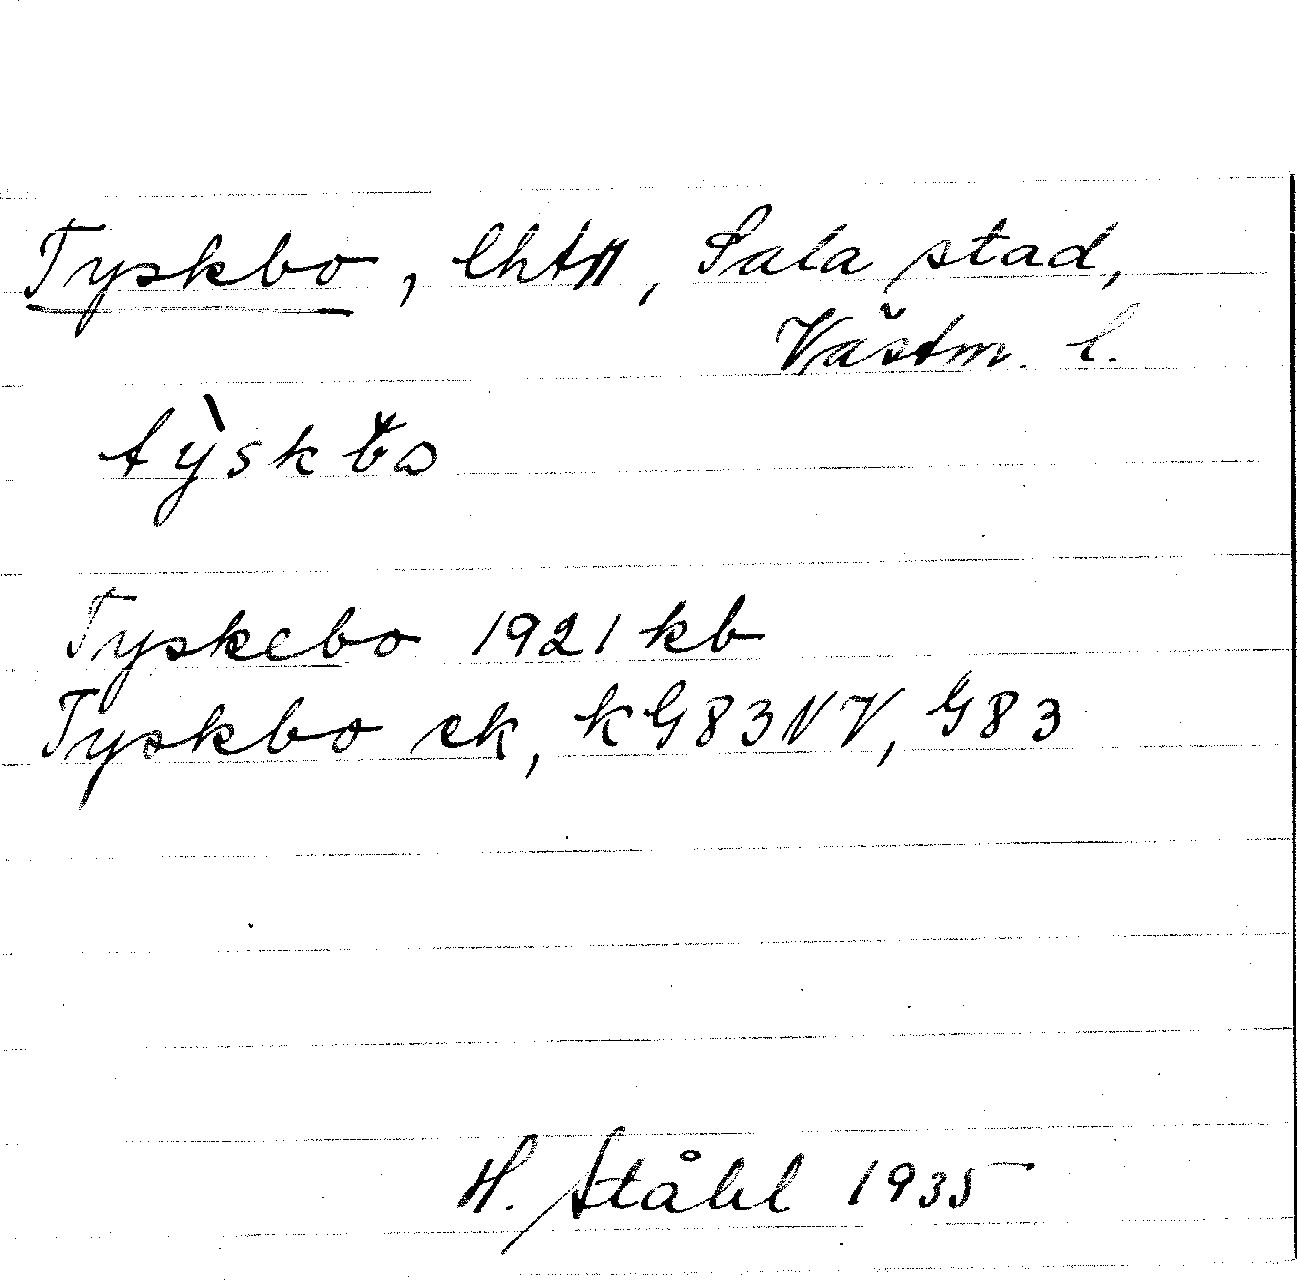 Tyskbo, lht, Sala stad,
Västm. l.
Tyskebo 1921 kb
Tyskbo ek, kG83NV, G83
H. Ståhl 1935